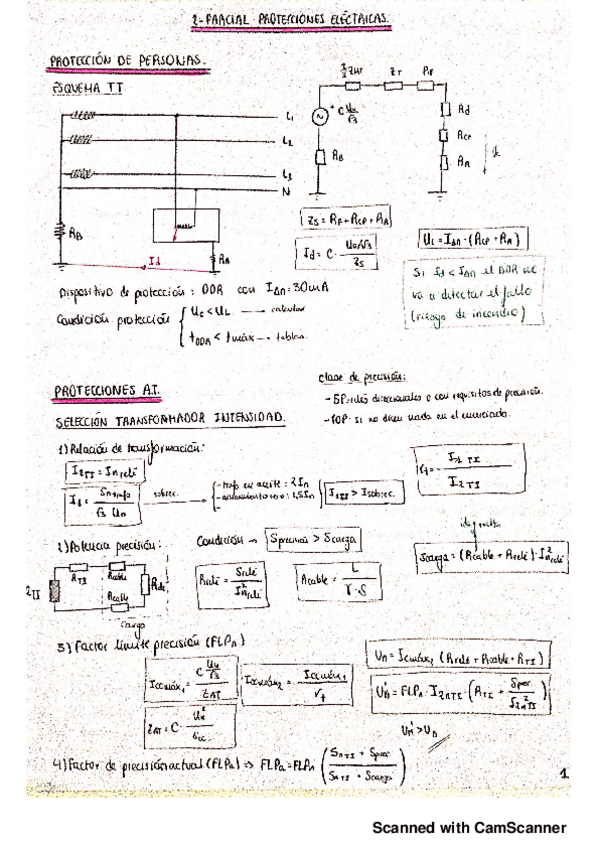 2-PARCIAL PROTECCIONES ELÉCTRICAS.
PROTECCIÓN DE PERSONAS.
ESQUEMA TT
L1
L2
L3
N
RB
Id
RA
ZT
RF
C Un/√3
RB
Rd
RCP
RA
ZS = RF + RCP + RA
Id = C · Un/√3 / ZS
UC = IΔn · (RCP + RA)
Si Id < IΔn el DDR no
va a detectar el fallo
(riesgo de incendio)
Dispositivo de protección: DDR con IΔn: 30mA
Condición protección { UC < UL → calcular
tDDR < tmáx → tablas.
PROTECCIONES A.T.
SELECCIÓN TRANSFORMADOR INTENSIDAD.
clase de precisión:
- 5P: relés direccionales o con requisitos de precisión.
- 10P: si no dicen nada en el enunciado.
1) Relación de transformación:
I2TI = In relé
I1 = Sn trafo / √3 Un
sobrec.
- trafo en aceite: 2In
I1TI > Isobrec.
rt = I1TI / I2TI
2) Potencia precisión:
Condición → Sprecisión > Scarga
RTI
Rcable
Rcable
Carga
Rrelé = Srelé / I²n relé
Rcable = L / γ · S
Scarga = (Rcable + Rrelé) · I²n relé
3) Factor límite precisión (FLPn)
Iccmáx1 = C Un/√3 / ZAT
Iccmáx2 = Iccmáx1 / rt
ZAT = C · Un² / Scc
Un = Iccmáx2 (Rrelé + Rcable + RTI)
Un' = FLPn · I2nTI · (RTI + Sprec / I²2nTI)
Un' > Un
4) Factor de precisión actual (FLPa) ⇒ FLPa = FLPn (SnTI + Sprec / SnTI + Scarga)
1
Scanned with CamScanner